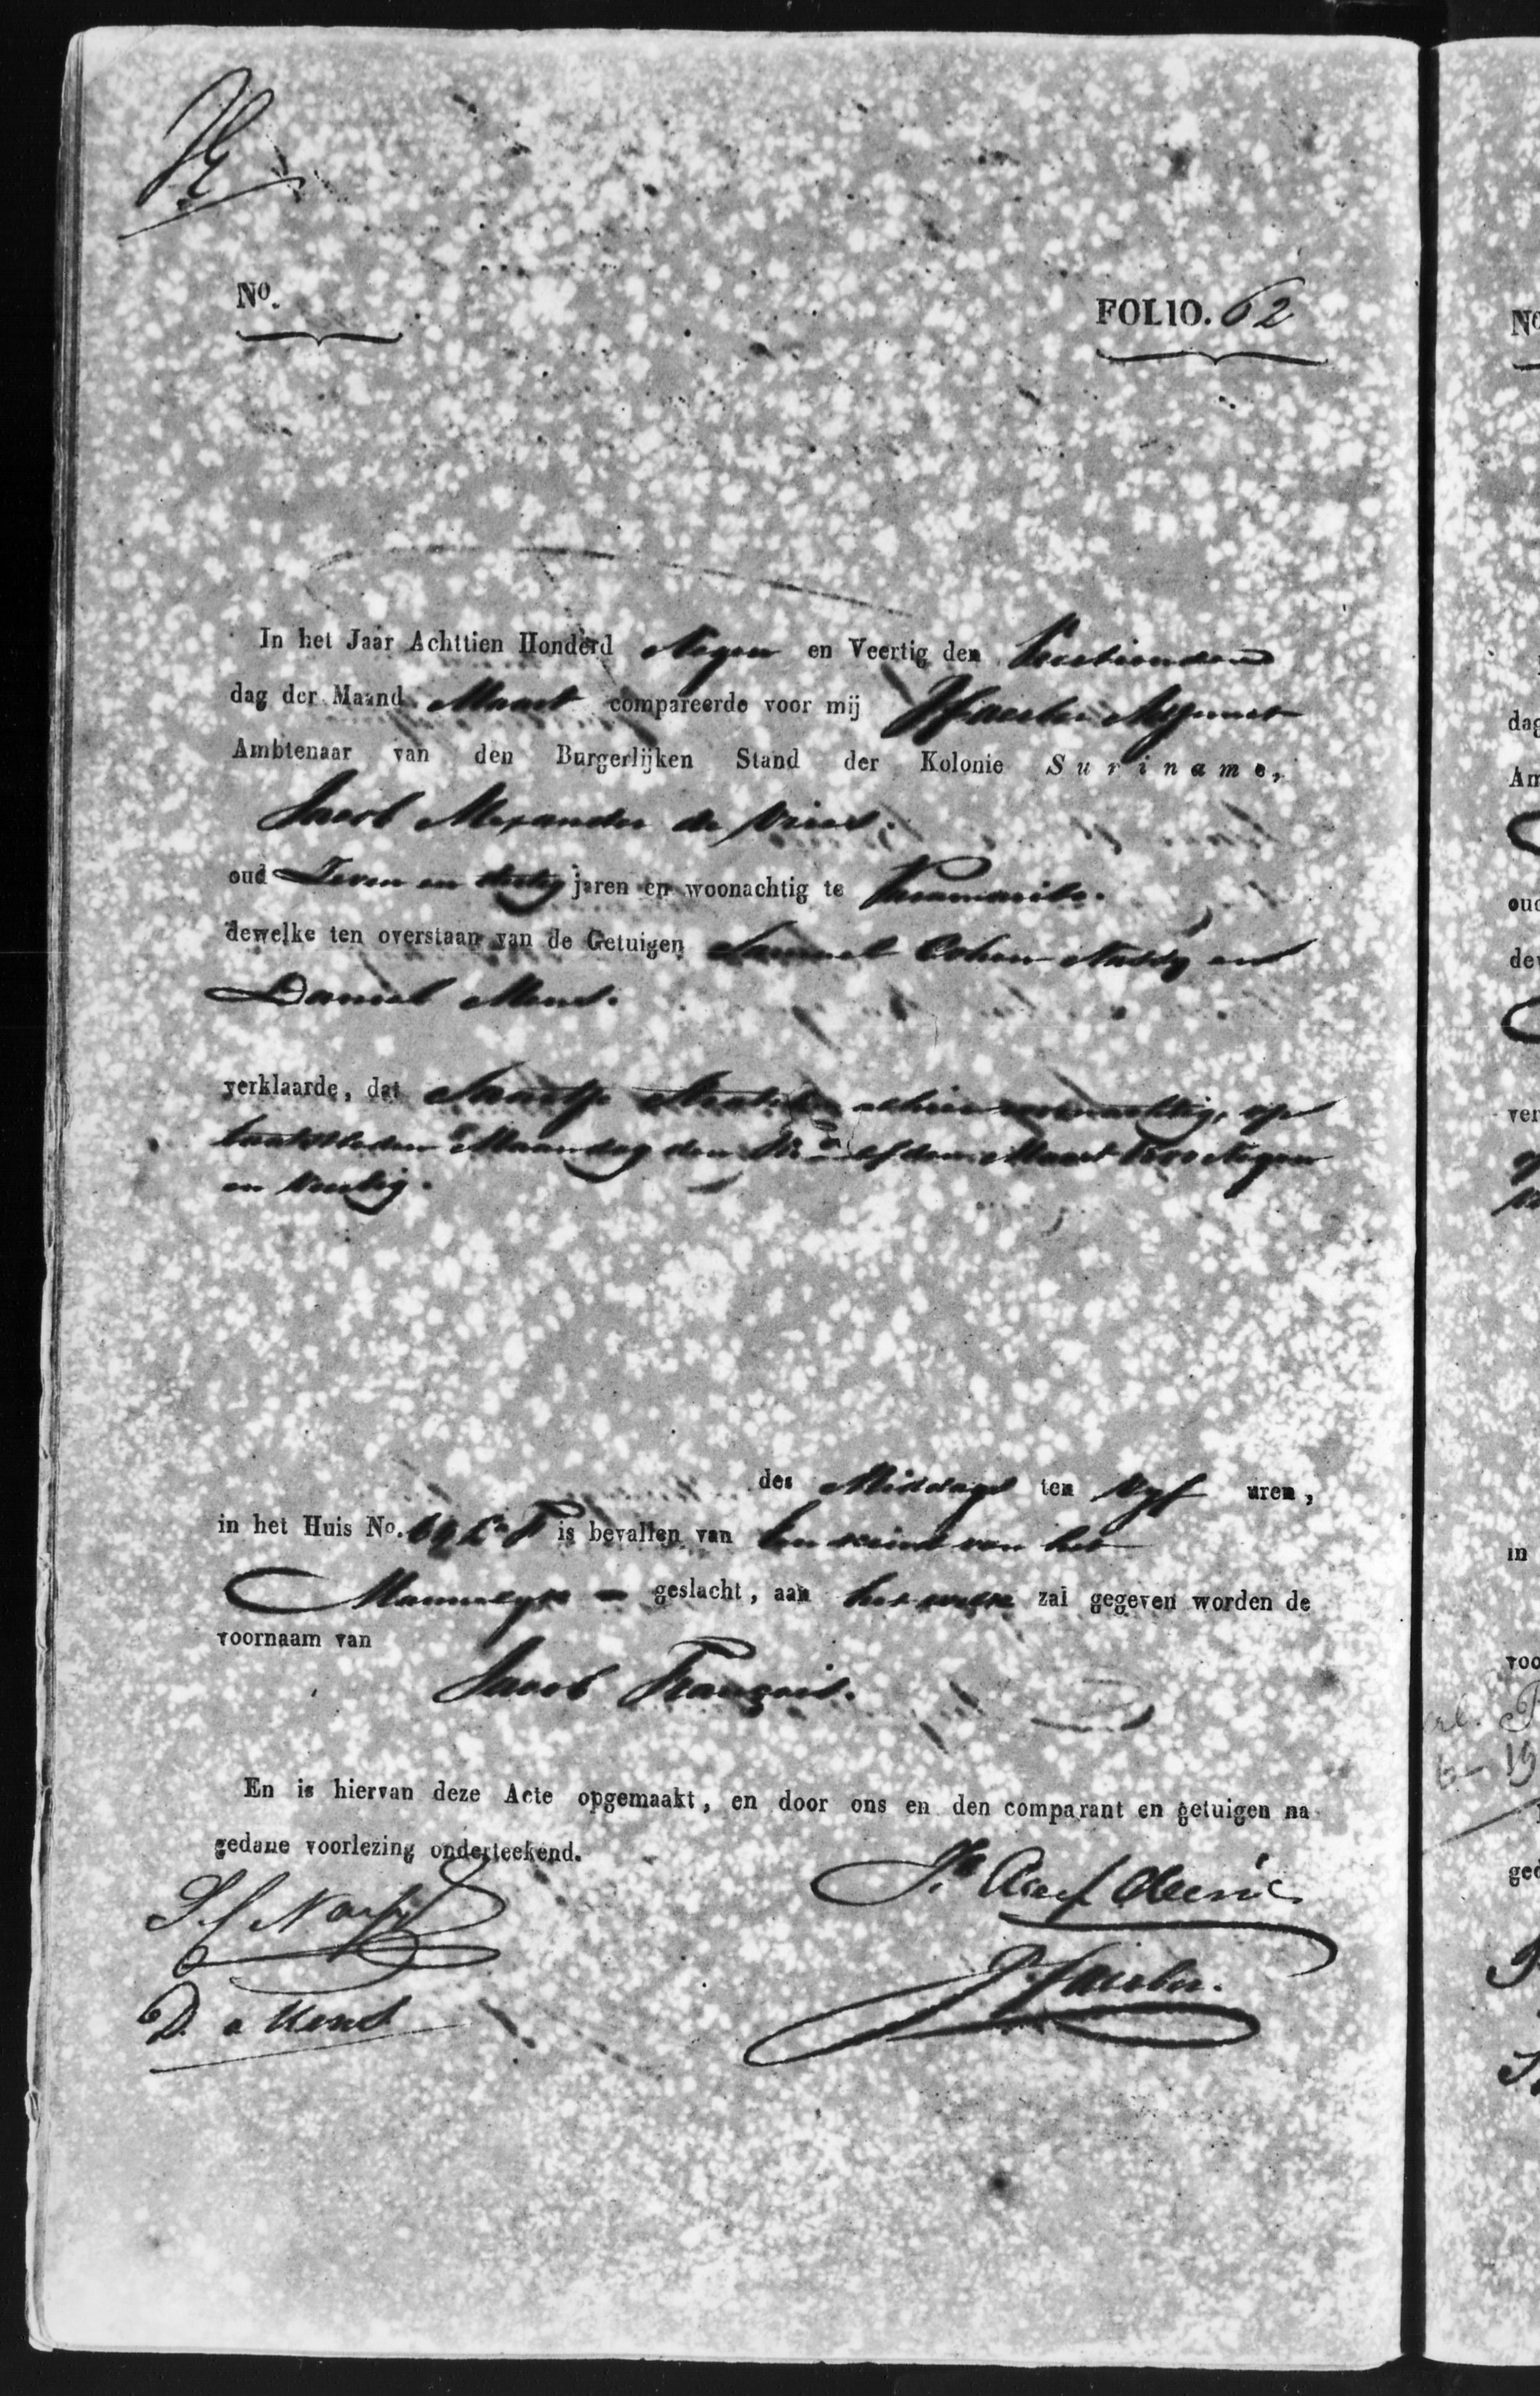 No.
FOLIO. 62
In het Jaar Achttien Honderd Negen en Veertig den
dag der Maand Maart compareerde voor mij
Ambtenaar van den Burgerlijken Stand der Kolonie Suriname,
Jacob Alexander de Vries.
oud Zeven en dertig jaren en woonachtig te Paramaribo.
dewelke ten overstaan van de Getuigen Samuel Cohen Nassy en
Daniel Mend.
verklaarde, dat Saartje alhier woonachtig, op
laatstleden Maandag den Maart 1800 Negen
en Veertig.
des Middags ten vyf uren,
in het Huis No. 69 La F is bevallen van Een kind van het
Mannelyk geslacht, aan het welk zal gegeven worden de
voornaam van
Jacob François.
En is hiervan deze Acte opgemaakt, en door ons en den comparant en getuigen na
gedane voorlezing onderteekend.
S C Nassy
D. Mend
No
dag
Am
oud
dew
ver
in
voo
ged